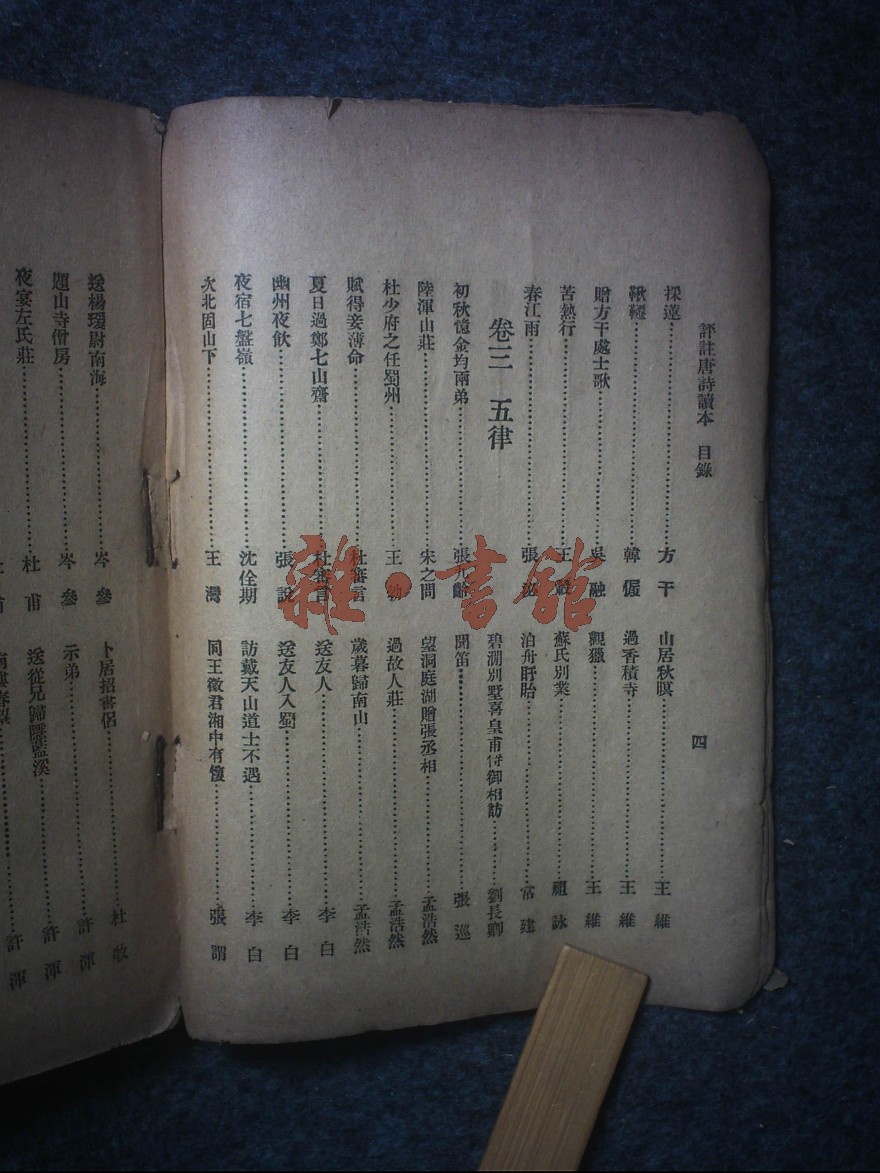 評註唐詩讀本 目錄
四
採蓮 方干
鞦韆 韓偓
贈方干處士歌 吳融
苦熱行 王轂
春江雨 張泌
卷三 五律
初秋憶金均兩弟 張九齡
陸渾山莊 宋之問
杜少府之任蜀州 王勃
賦得妾薄命 杜審言
夏日過鄭七山齋 杜審言
幽州夜飲 張說
夜宿七盤嶺 沈佺期
次北固山下 王灣
山居秋暝 王維
過香積寺 王維
觀獵 王維
蘇氏別業 祖詠
泊舟盱眙 常建
碧澗別墅喜皇甫侍御相訪 劉長卿
聞笛 張巡
望洞庭湖贈張丞相 孟浩然
過故人莊 孟浩然
歲暮歸南山 孟浩然
送友人 李白
送友人入蜀 李白
訪戴天山道士不遇 李白
同王徵君湘中有懷 張謂
送楊瑗尉南海 岑參
題山寺僧房 岑參
夜宴左氏莊 杜甫
卜居招書侶 杜牧
示弟 許渾
送從兄歸隱藍溪 許渾
許渾
雜·書館